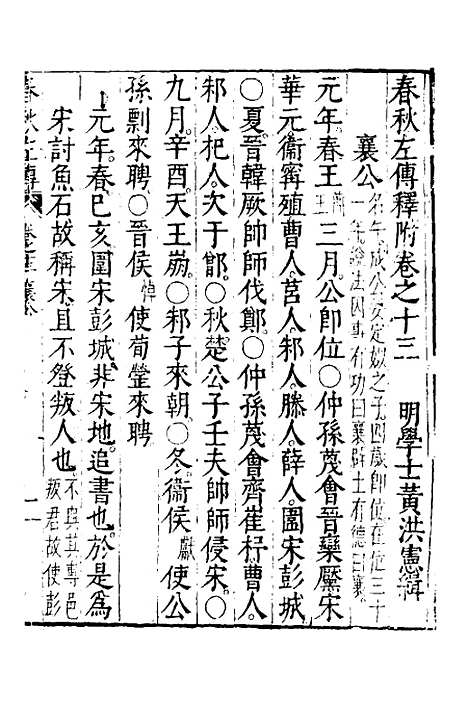 春秋左傳釋附卷之十三　　明學士黃洪憲輯
襄公名午成公妾定姒之子四歲即位在位三十
一年諡法因事有功曰襄辟土有德曰襄
元年春王簡王三月。公即位〇仲孫蔑會晉欒黶宋
華元。衞甯殖曹人。莒人。邾人。滕人。薛人。圍宋彭城
〇夏。晉韓厥帥師伐鄭。〇仲孫蔑會齊崔杼曹人。
邾人。杞人。次于鄫。〇秋。楚公子壬夫帥師侵宋。〇
九月。辛酉。天王崩。〇邾子來朝。〇冬。衞侯獻使公
孫剽來聘。〇晉侯悼使荀罃來聘
元年。春。己亥圍宋彭城。非宋地。追書也。於是爲
宋討魚石故稱宋。且不登叛人也。不與其專邑
叛君故使彭